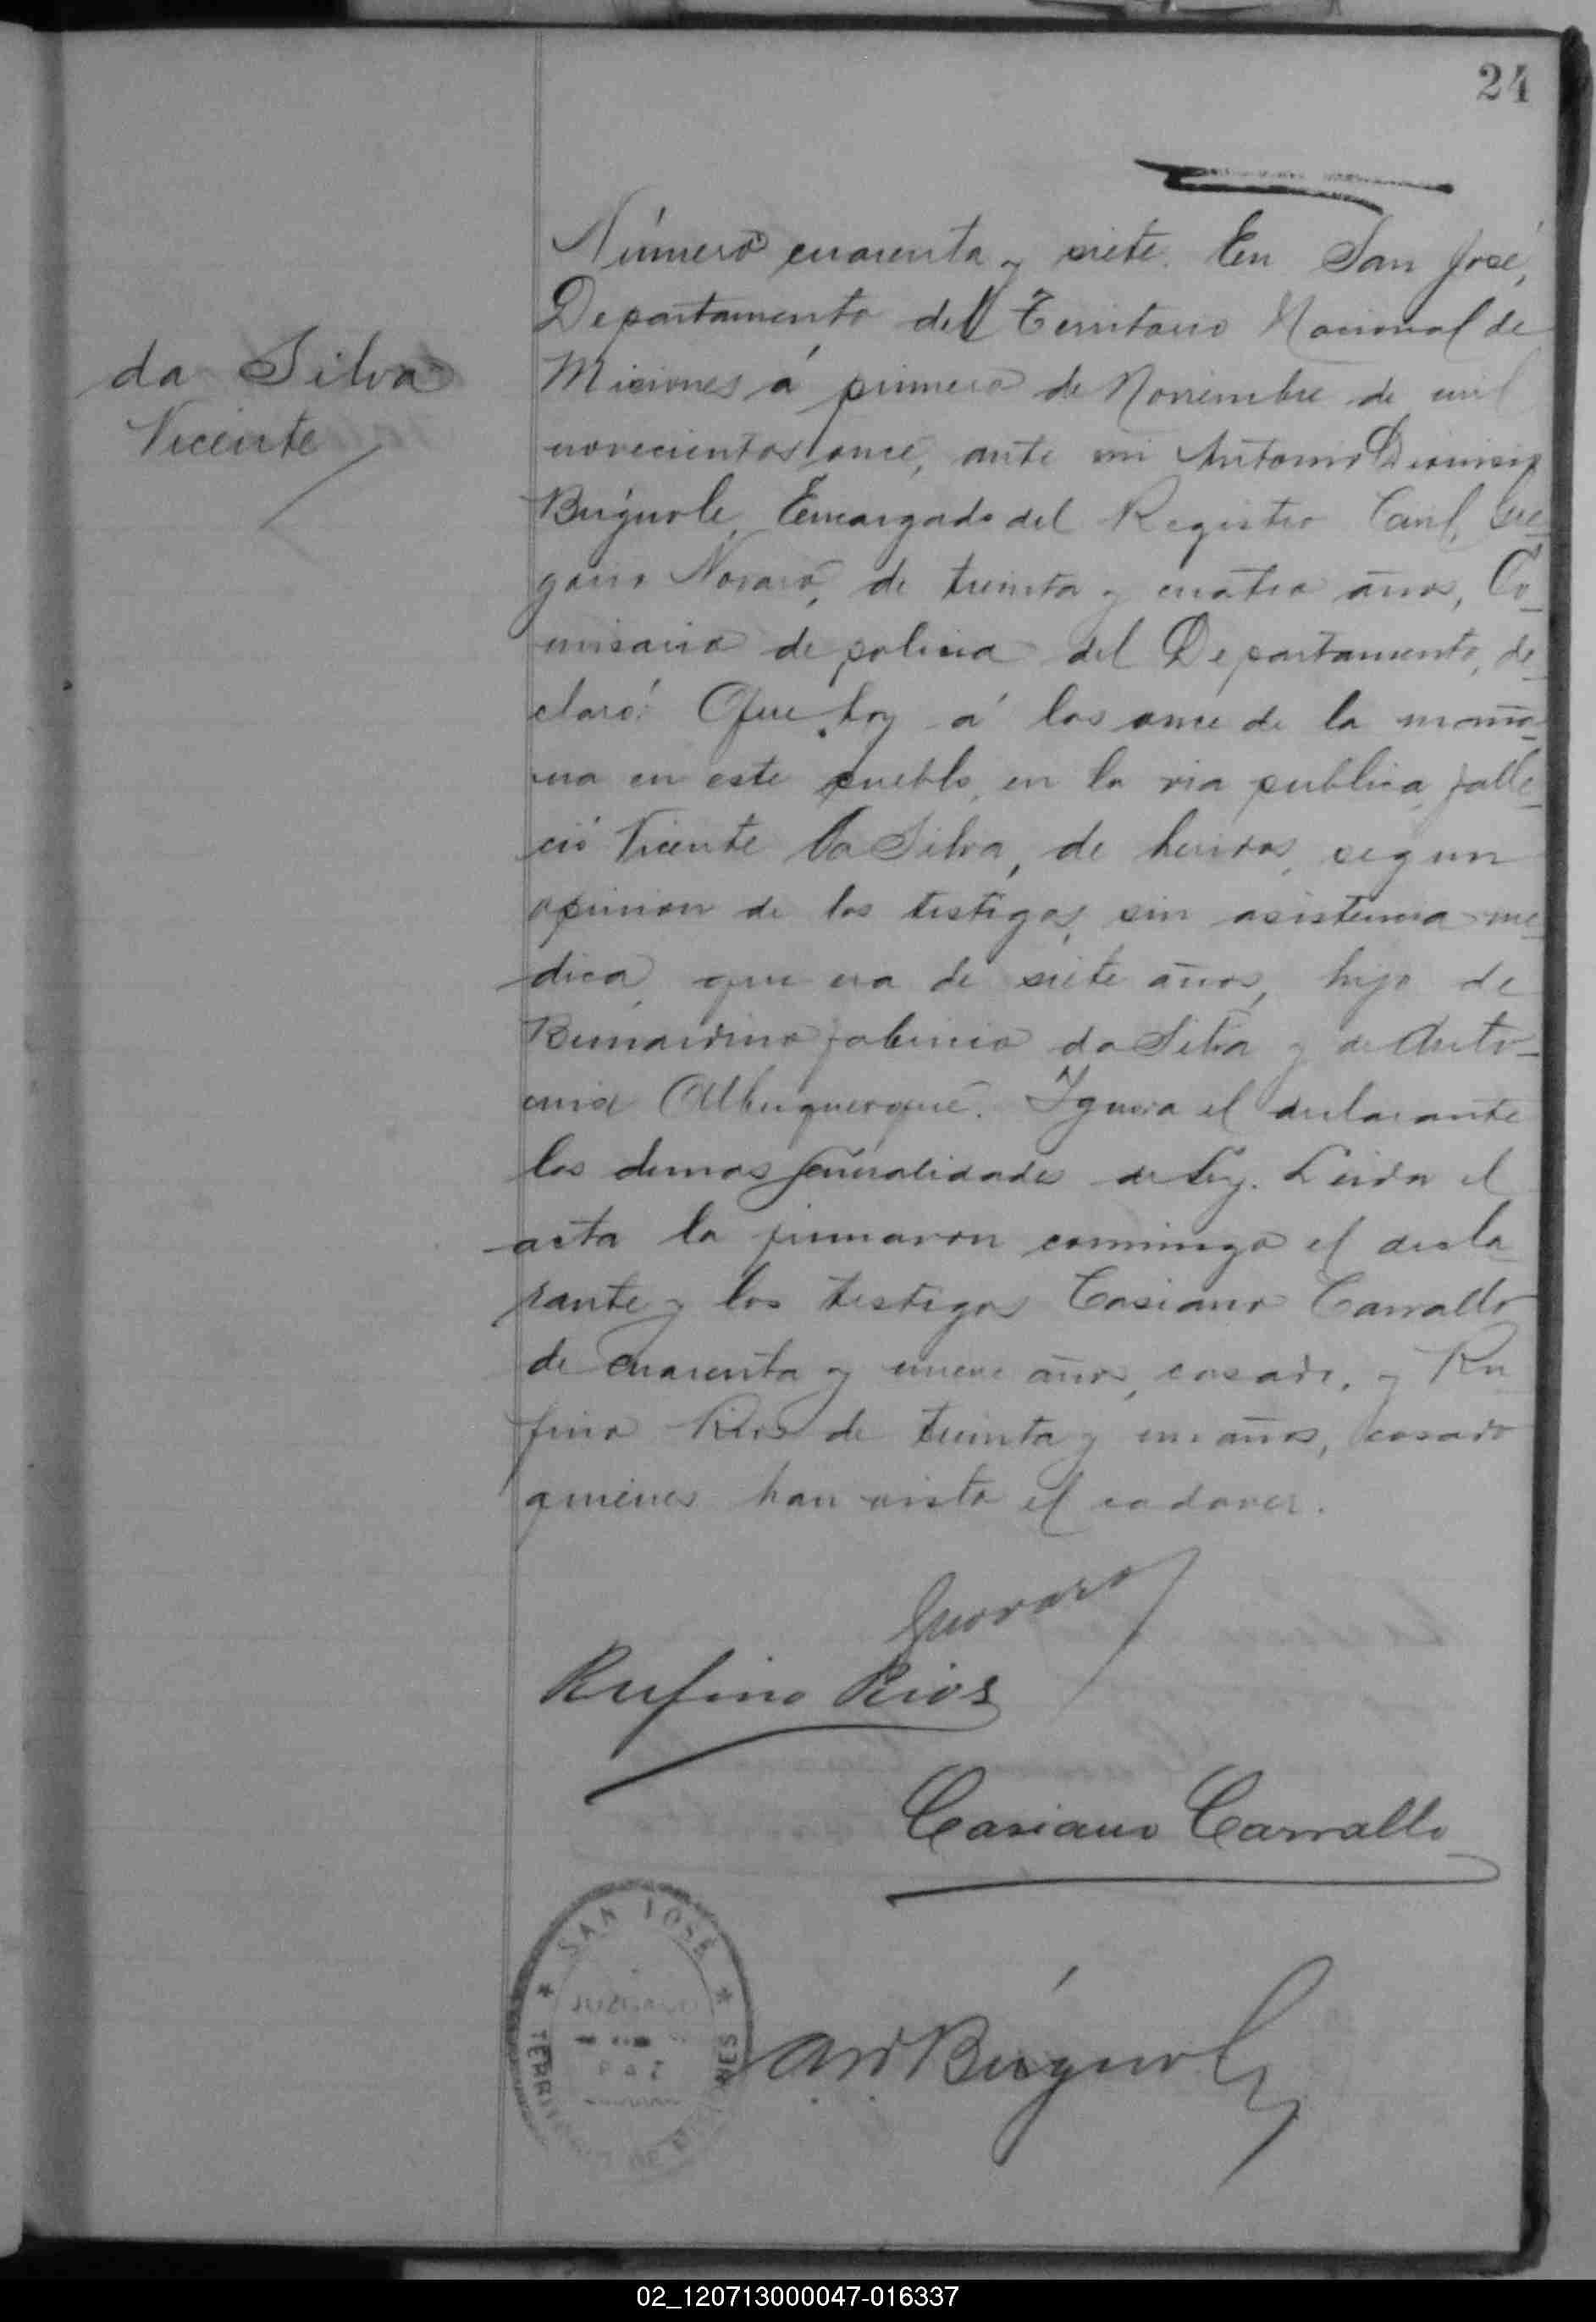 24
da Silva
Vicente
Número cuarenta y siete. En San José,
Departamento del Territorio Nacional de
Misiones á primero de Noviembre de mil
novecientos once, ante mi Antonio Dionisio
Búgnole, Encargado del Registro Civil, Gre-
gorio Novaró, de treinta y cuatro años, Co-
misario de policia del Departamento, de-
claró: Que hoy á las once de la maña-
na en este pueblo, en la via publica, falle-
ció Vicente da Silva, de heridas, segun
opinion de los testigos, sin asistencia me-
dica, que era de siete años, hijo de
Bernardino da Silva y de Anto-
onia Albuquerque. Ignora el declarante
las demas generalidades de ley. Leida el
acta la firmaron conmigo el decla-
rante y los testigos Casiano Carvallo
de cuarenta y nueve años, casado, y Ru
fino Rios de treinta y un años, casado
quienes han visto el cadaver.
GNovaro
Rufino Rios
Casiano Carvallo
SAN JOSÉ
TERRITORIO DE MISIONES
AnDBúgnole
02_120713000047-016337